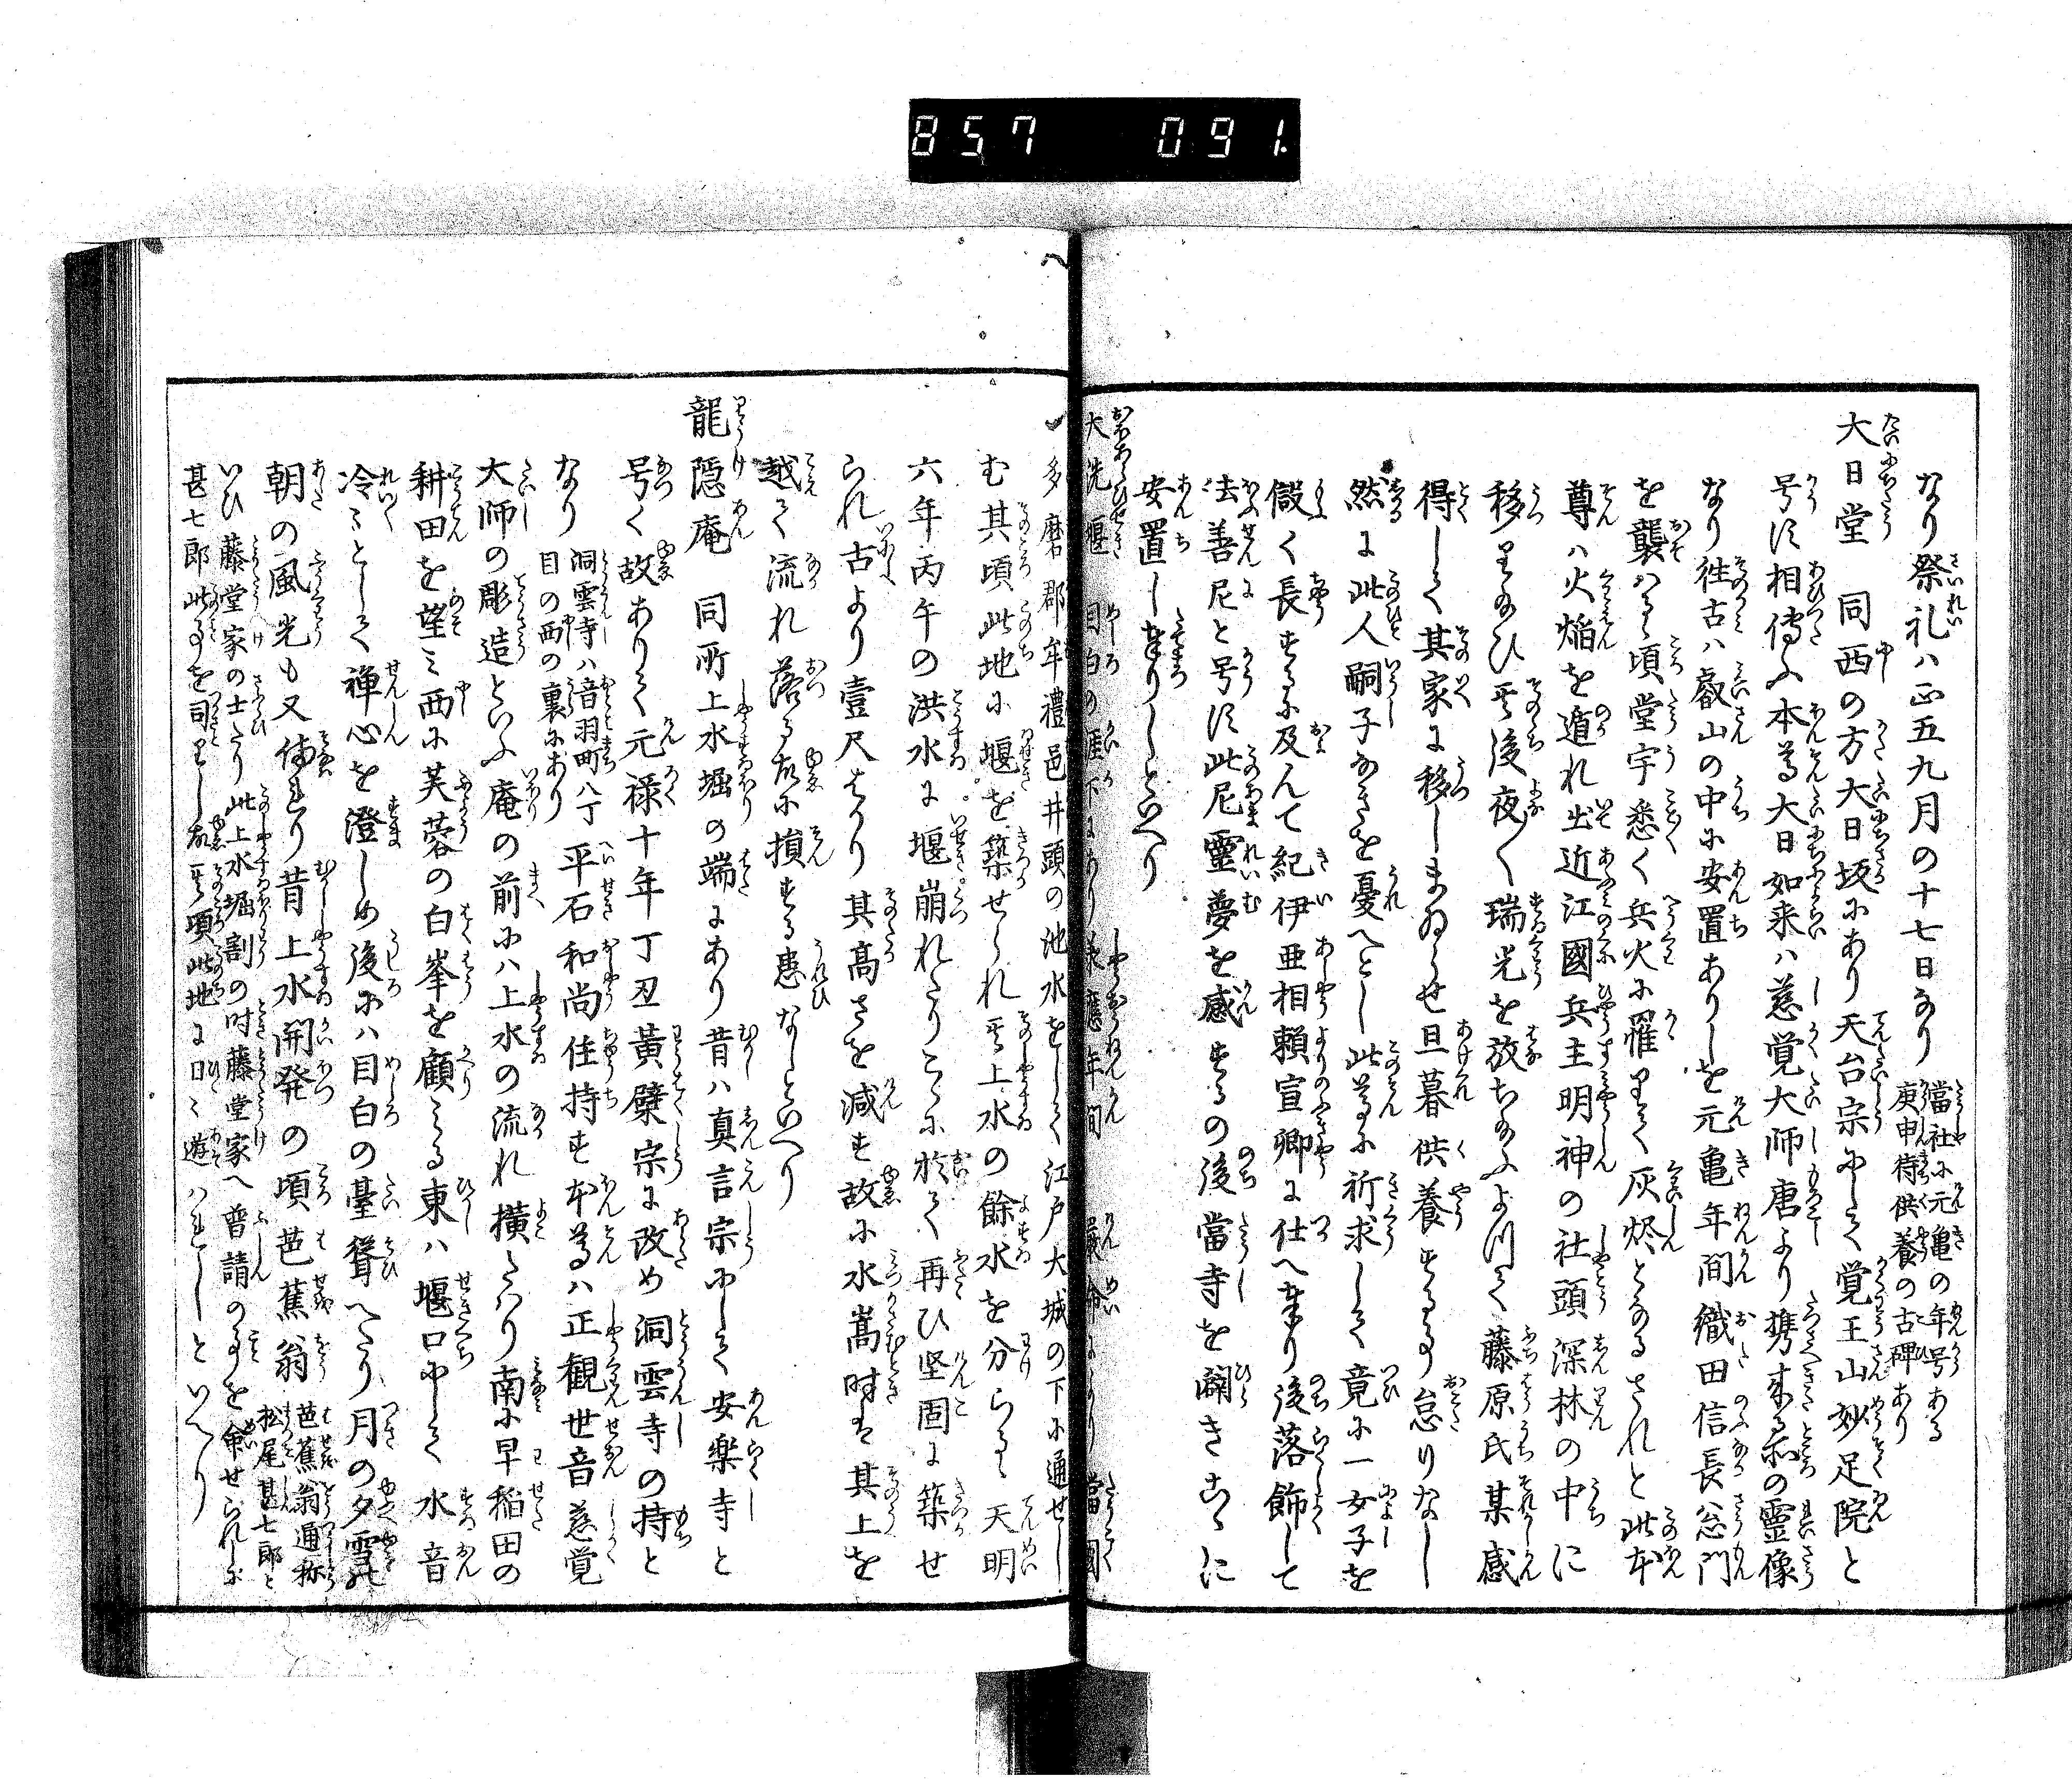 857 091.
なり祭礼ハ正五九月の十七日なり 當社に元亀の年号ある
庚申待供養の古碑あり
大日堂 同西の方大日坂にあり天台宗にして覚王山妙足院と
号す相傳ふ本尊大日如来ハ慈覚大師唐より携来る所の霊像
なり往古ハ叡山の中に安置ありしを元亀年間織田信長公山門
を襲はるゝ頃堂宇悉く兵火に罹りて灰燼となるされと此本
尊ハ火焔を遁れ出近江國兵主明神の社頭深林の中に
移り給ひ其後夜々瑞光を放ち給ふよつて藤原氏某感
得して其家に移しまゐらせ旦暮供養する事怠りなし
然に此人嗣子なきを憂へとし此尊に祈求して竟に一女子を
儲く長するに及んて紀伊亜相頼宣卿に仕へ奉り後落飾して
法善尼と号す此尼霊夢を感するの後當寺を闢きこゝに
安置し奉りしといへり
大洗堰 目白の崖下にあり承應年間 嚴命により 當國
多磨郡牟禮邑井頭の池水をして江戸大城の下に通せし
む其頃此地に堰を築せられ其上水の餘水を分らる天明
六年丙午の洪水に堰崩れたりこゝに於て再ひ堅固に築せ
られ古より壹尺はかり其高さを減す故に水嵩時は其上を
越て流れ落る故に損する患なしといへり
龍隠庵 同所上水堀の端にあり昔ハ真言宗にして安楽寺と
号く故ありて元禄十年丁丑黄檗宗に改め洞雲寺の持と
なり 洞雲寺ハ音羽町八丁
目の西の裏にあり 平石和尚住持す本尊ハ正観世音慈覚
大師の彫造といふ庵の前にハ上水の流れ横たハり南に早稲田の
耕田を望ミ西に芙蓉の白峯を顧ミる東ハ堰口にして水音
冷ミとして禅心を澄しめ後にハ目白の臺聳へたり月の夕雪の
朝の風光も又備れり昔上水開発の頃芭蕉翁 芭蕉翁通称
松尾甚七郎と
いひ藤堂家の士たり此上水堀割の時藤堂家へ普請の事を命せられしに
甚七郎此事を司りし故其頃此地に日々遊ハれしといへり